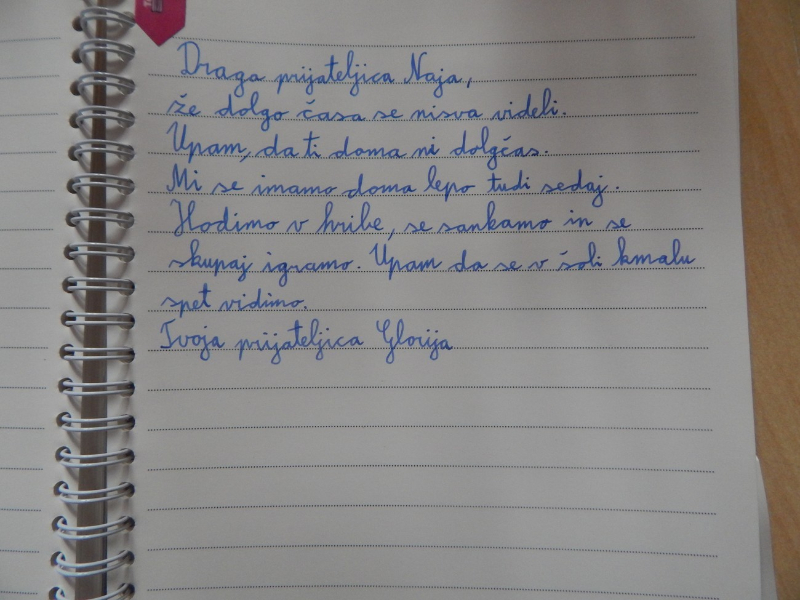 Draga prijateljica Naja,
že dolgo časa se nisva videli.
Upam, da ti doma ni dolgčas.
Mi se imamo doma lepo tudi sedaj.
Hodimo v hribe, se sankamo in se
skupaj igramo. Upam da se v šoli kmalu
spet vidimo.
Tvoja prijateljica Glorija